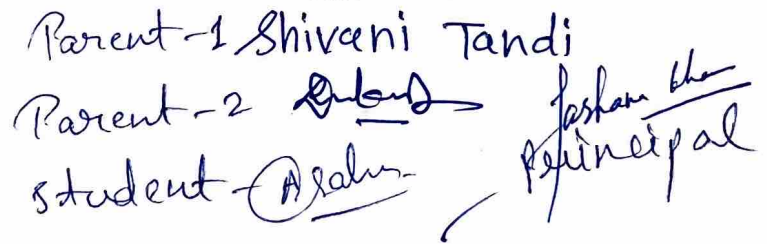 Parent-1 Shivani Tandi
Parent-2
Student - Asahu
Principal